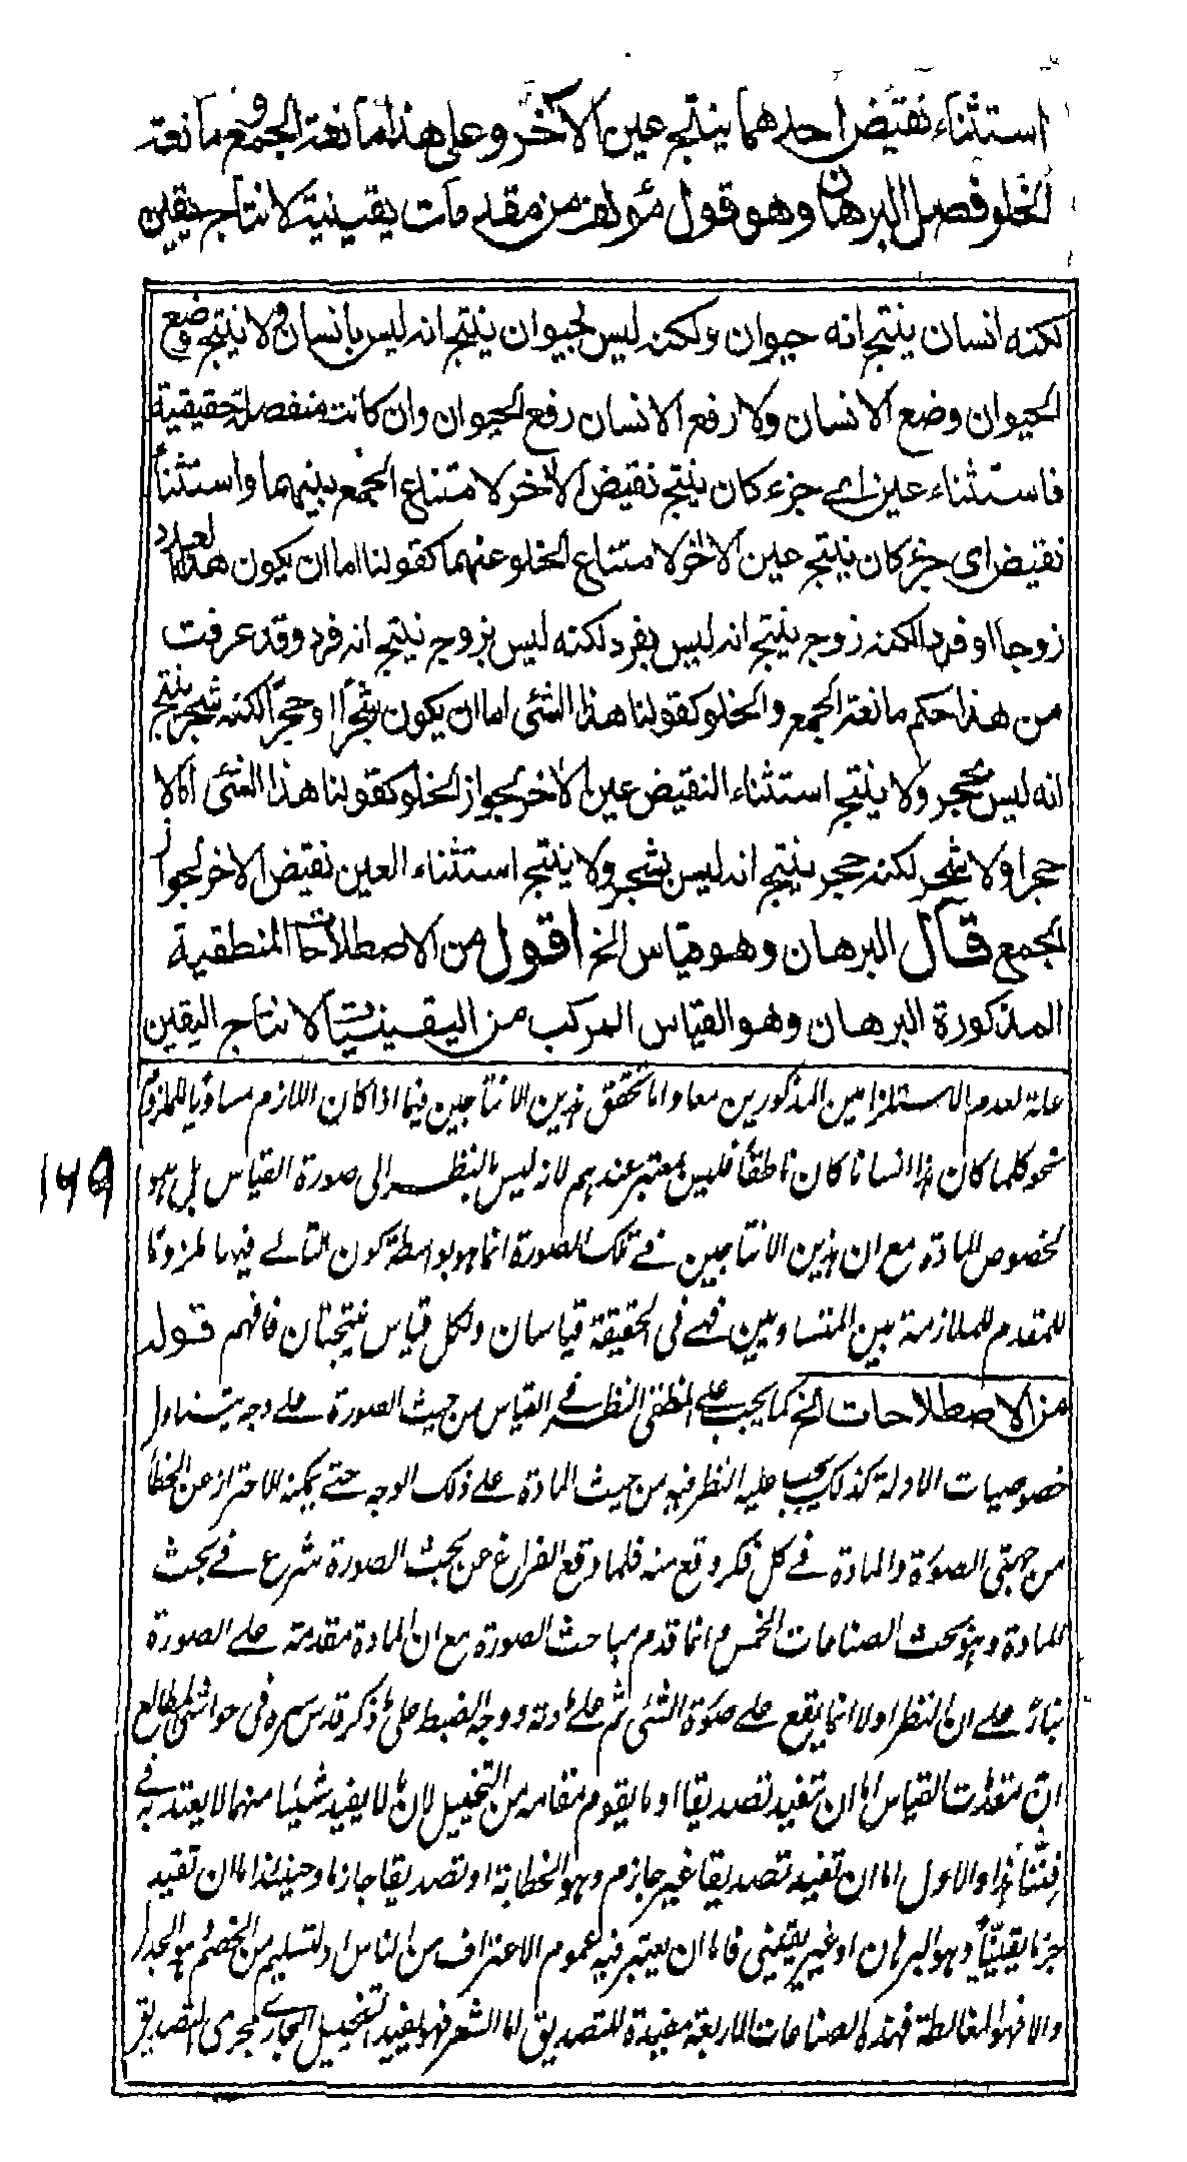 استثناء نقيض احدهما ينتج عين الآخر وعلى هذا مانعة الجمع ومانعة
الخلو فصل البرهان وهو قول مؤلف من مقدمات يقينية لانتاج يقين
لكنه انسان ينتج انه حيوان ولكنه ليس بحيوان ينتج انه ليس بانسان ولا ينتج وضع
الحيوان وضع الانسان ولا رفع الانسان رفع الحيوان وان كانت منفصلة حقيقية
فاستثناء عين اى جزء كان ينتج نقيض الآخر لامتناع الجمع بينهما واستثناء
نقيض اى جزء كان ينتج عين الآخر لامتناع الخلو عنهما كقولنا اما ان يكون هذا العدد
زوجا او فردا لكنه زوج ينتج انه ليس بفرد لكنه ليس بزوج ينتج انه فرد وقد عرفت
من هذا حكم مانعة الجمع والخلو كقولنا هذا الشئ اما ان يكون شجرًا او حجرًا لكنه شجر ينتج
انه ليس بحجر ولا ينتج استثناء النقيض عين الآخر لجواز الخلو كقولنا هذا الشئ اما لا
حجر او لا شجر لكنه حجر ينتج انه ليس بشجر ولا ينتج استثناء العين نقيض الآخر لجواز
الجمع قال البرهان وهو قياس الخ اقول من الاصطلاحات المنطقية
المذكورة البرهان وهو القياس المركب من اليقينيات لانتاج اليقين
علة لعدم الاستلزامين المذكورين معا واما تحقق هذين الانتاجين فيما اذا كان اللازم مساويا للملزوم
نحو كلما كان هذا انسانا كان ناطقا فليس بمعتبر عندهم لانه ليس بالنظر الى صورة القياس بل هو
لخصوص المادة مع ان هذين الانتاجين فى تلك الصورة انما هو بواسطة كون التالى فيها ملزوما
للمقدم للملازمة بين المتساويين فهى فى الحقيقة قياسان ولكل قياس نتيجتان فافهم قوله
من الاصطلاحات الخ كما يجب على المنطقى النظر فى القياس من حيث الصورة على وجه يتناول
خصوصيات الادلة كذلك يجب عليه النظر فيه من حيث المادة على ذلك الوجه حتى يمكنه الاحتراز عن الخطأ
من جهتى الصورة والمادة فى كل فكر وقع منه فلما وقع الفراغ عن بحث الصورة شرع فى بحث
المادة وهو بحث الصناعات الخمس وانما قدم مباحث الصورة مع ان المادة مقدمة على الصورة
بناءً على ان النظر اولا انما يقع على صورة الشئ ثم على مادته ووجه الضبط على ما ذكر قدس سره فى حواشى المطالع
ان مقدمات القياس اما ان تفيد تصديقا او ما يقوم مقامه من التخييل لان ما لا يفيد شيئا منهما لا يعتد به فى
فننا هذا والاول اما ان تفيد تصديقا غير جازم وهو الخطابة او تصديقا جازما وحينئذ اما ان تفيد
جزما يقينيًا وهو البرهان او غير يقينى فاما ان يعتبر فيه عموم الاعتراف من الناس او لتسليم من الخصم هو الجدل
والا فهو المغالطة فهذه الصناعات الاربعة مفيدة للتصديق اما الشعر فهو يفيد التخييل الجارى مجرى التصديق
۱۶۹